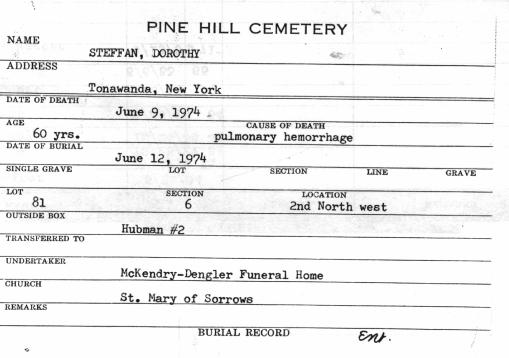 PINE HILL CEMETERY
NAME
STEFFAN, DOROTHY
ADDRESS
Tonawanda, New York
DATE OF DEATH
June 9, 1974
AGE CAUSE OF DEATH
60 yrs. pulmonary hemorrhage
DATE OF BURIAL
June 12, 1974
SINGLE GRAVE LOT SECTION LINE GRAVE
LOT SECTION LOCATION
81 6 2nd North west
OUTSIDE BOX
Hubman #2
TRANSFERRED TO
UNDERTAKER
McKendry-Dengler Funeral Home
CHURCH
St. Mary of Sorrows
REMARKS
BURIAL RECORD Ent.